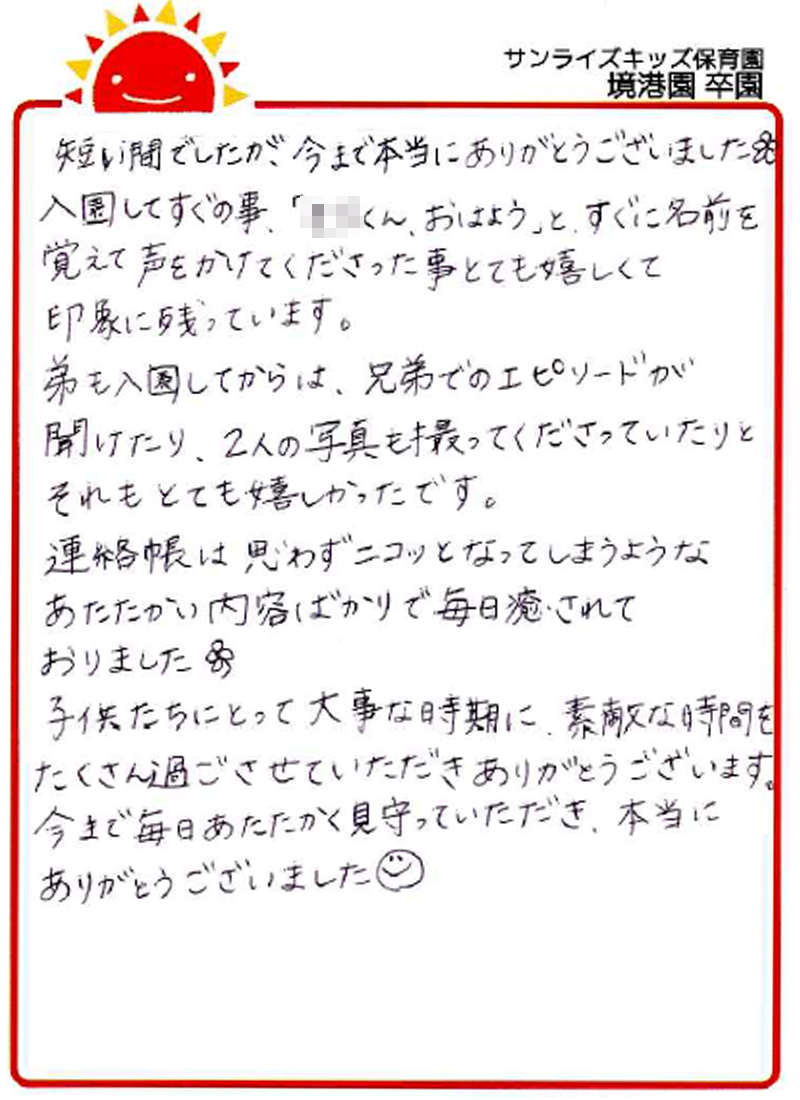 サンライズキッズ保育園
境港園 卒園
短い間でしたが、今まで本当にありがとうございました
入園してすぐの事、「くん、おはよう」と、すぐに名前を
覚えて声をかけてくださった事とても嬉しくて
印象に残っています。
弟も入園してからは、兄弟でのエピソードが
聞けたり、2人の写真も撮ってくださっていたりと
それもとても嬉しかったです。
連絡帳は思わずニコッとなってしまうような
あたたかい内容ばかりで毎日癒されて
おりました
子供たちにとって大事な時期に、素敵な時間を
たくさん過ごさせていただきありがとうございます。
今まで毎日あたたかく見守っていただき、本当に
ありがとうございました